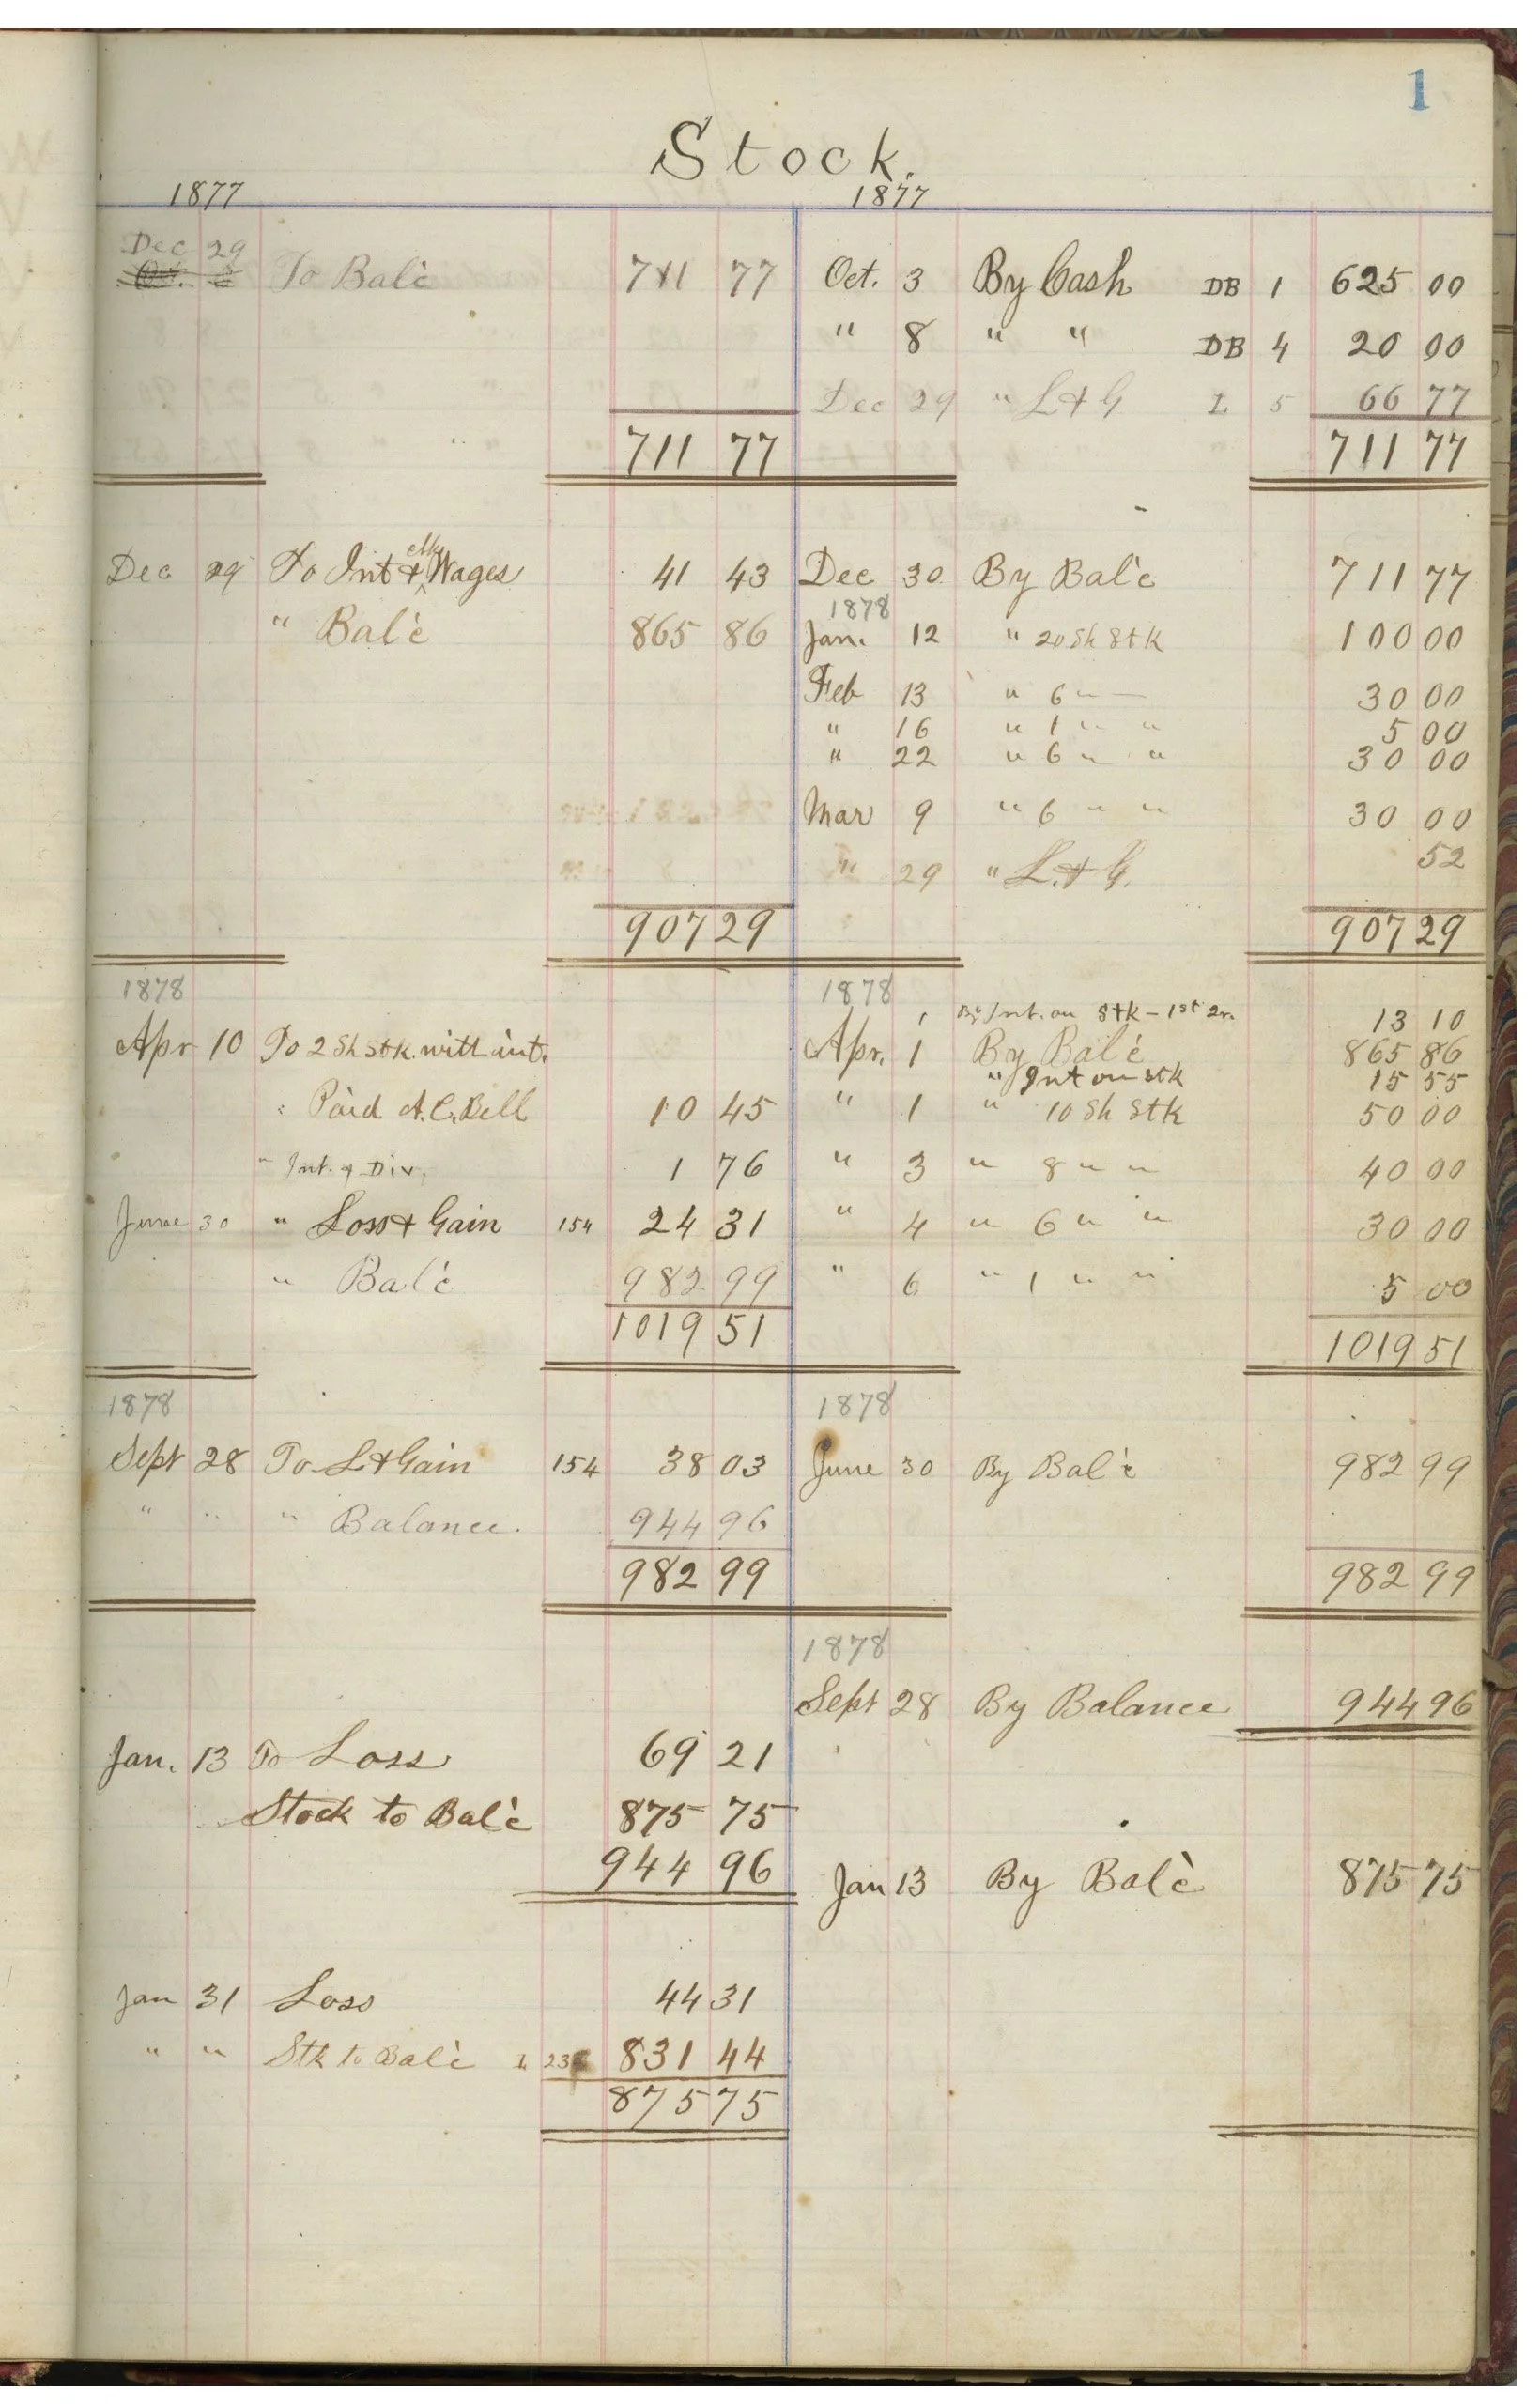 1
Stock.
1877 1877
Dec 29
To Balc 711 77 Oct. 3 By Cash DB 1 625 00
" 8 " " DB 4 20 00
Dec 29 " L & G L 5 66 77
711 77 711 77
Dec 29 To Int & Wages 41 43 Dec 30 By Balc 711 77
1878
" Balc 865 86 Jan. 12 " 20 Sh Stk 100 00
Feb 13 " 6 " — 30 00
" 16 " 1 " " 5 00
" 22 " 6 " " 30 00
Mar 9 " 6 " " 30 00
" 29 " L. & G. 52
907 29 907 29
1878 1878
1 By Int. on Stk – 1st Qr. 13 10
Apr 10 To 2 Sh Stk. with int. Apr. 1 By Balc 865 86
" Int on Stk 15 55
" Paid A. C. Bell 10 45 " 1 " 10 Sh Stk 50 00
" Int. & Div. 1 76 " 3 " 8 " " 40 00
June 30 " Loss & Gain 154 24 31 " 4 " 6 " " 30 00
" Balc 982 99 " 6 " 1 " " 5 00
1019 51 1019 51
1878 1878
Sept 28 To L & Gain 154 38 03 June 30 By Balc 982 99
" " " Balance. 944 96
982 99 982 99
1878
Sept 28 By Balance 944 96
Jan. 13 To Loss 69 21
Stock to Balc 875 75
944 96 Jan 13 By Balc 875 75
Jan 31 Loss 44 31
" " Stk to Balc L 831 44
875 75